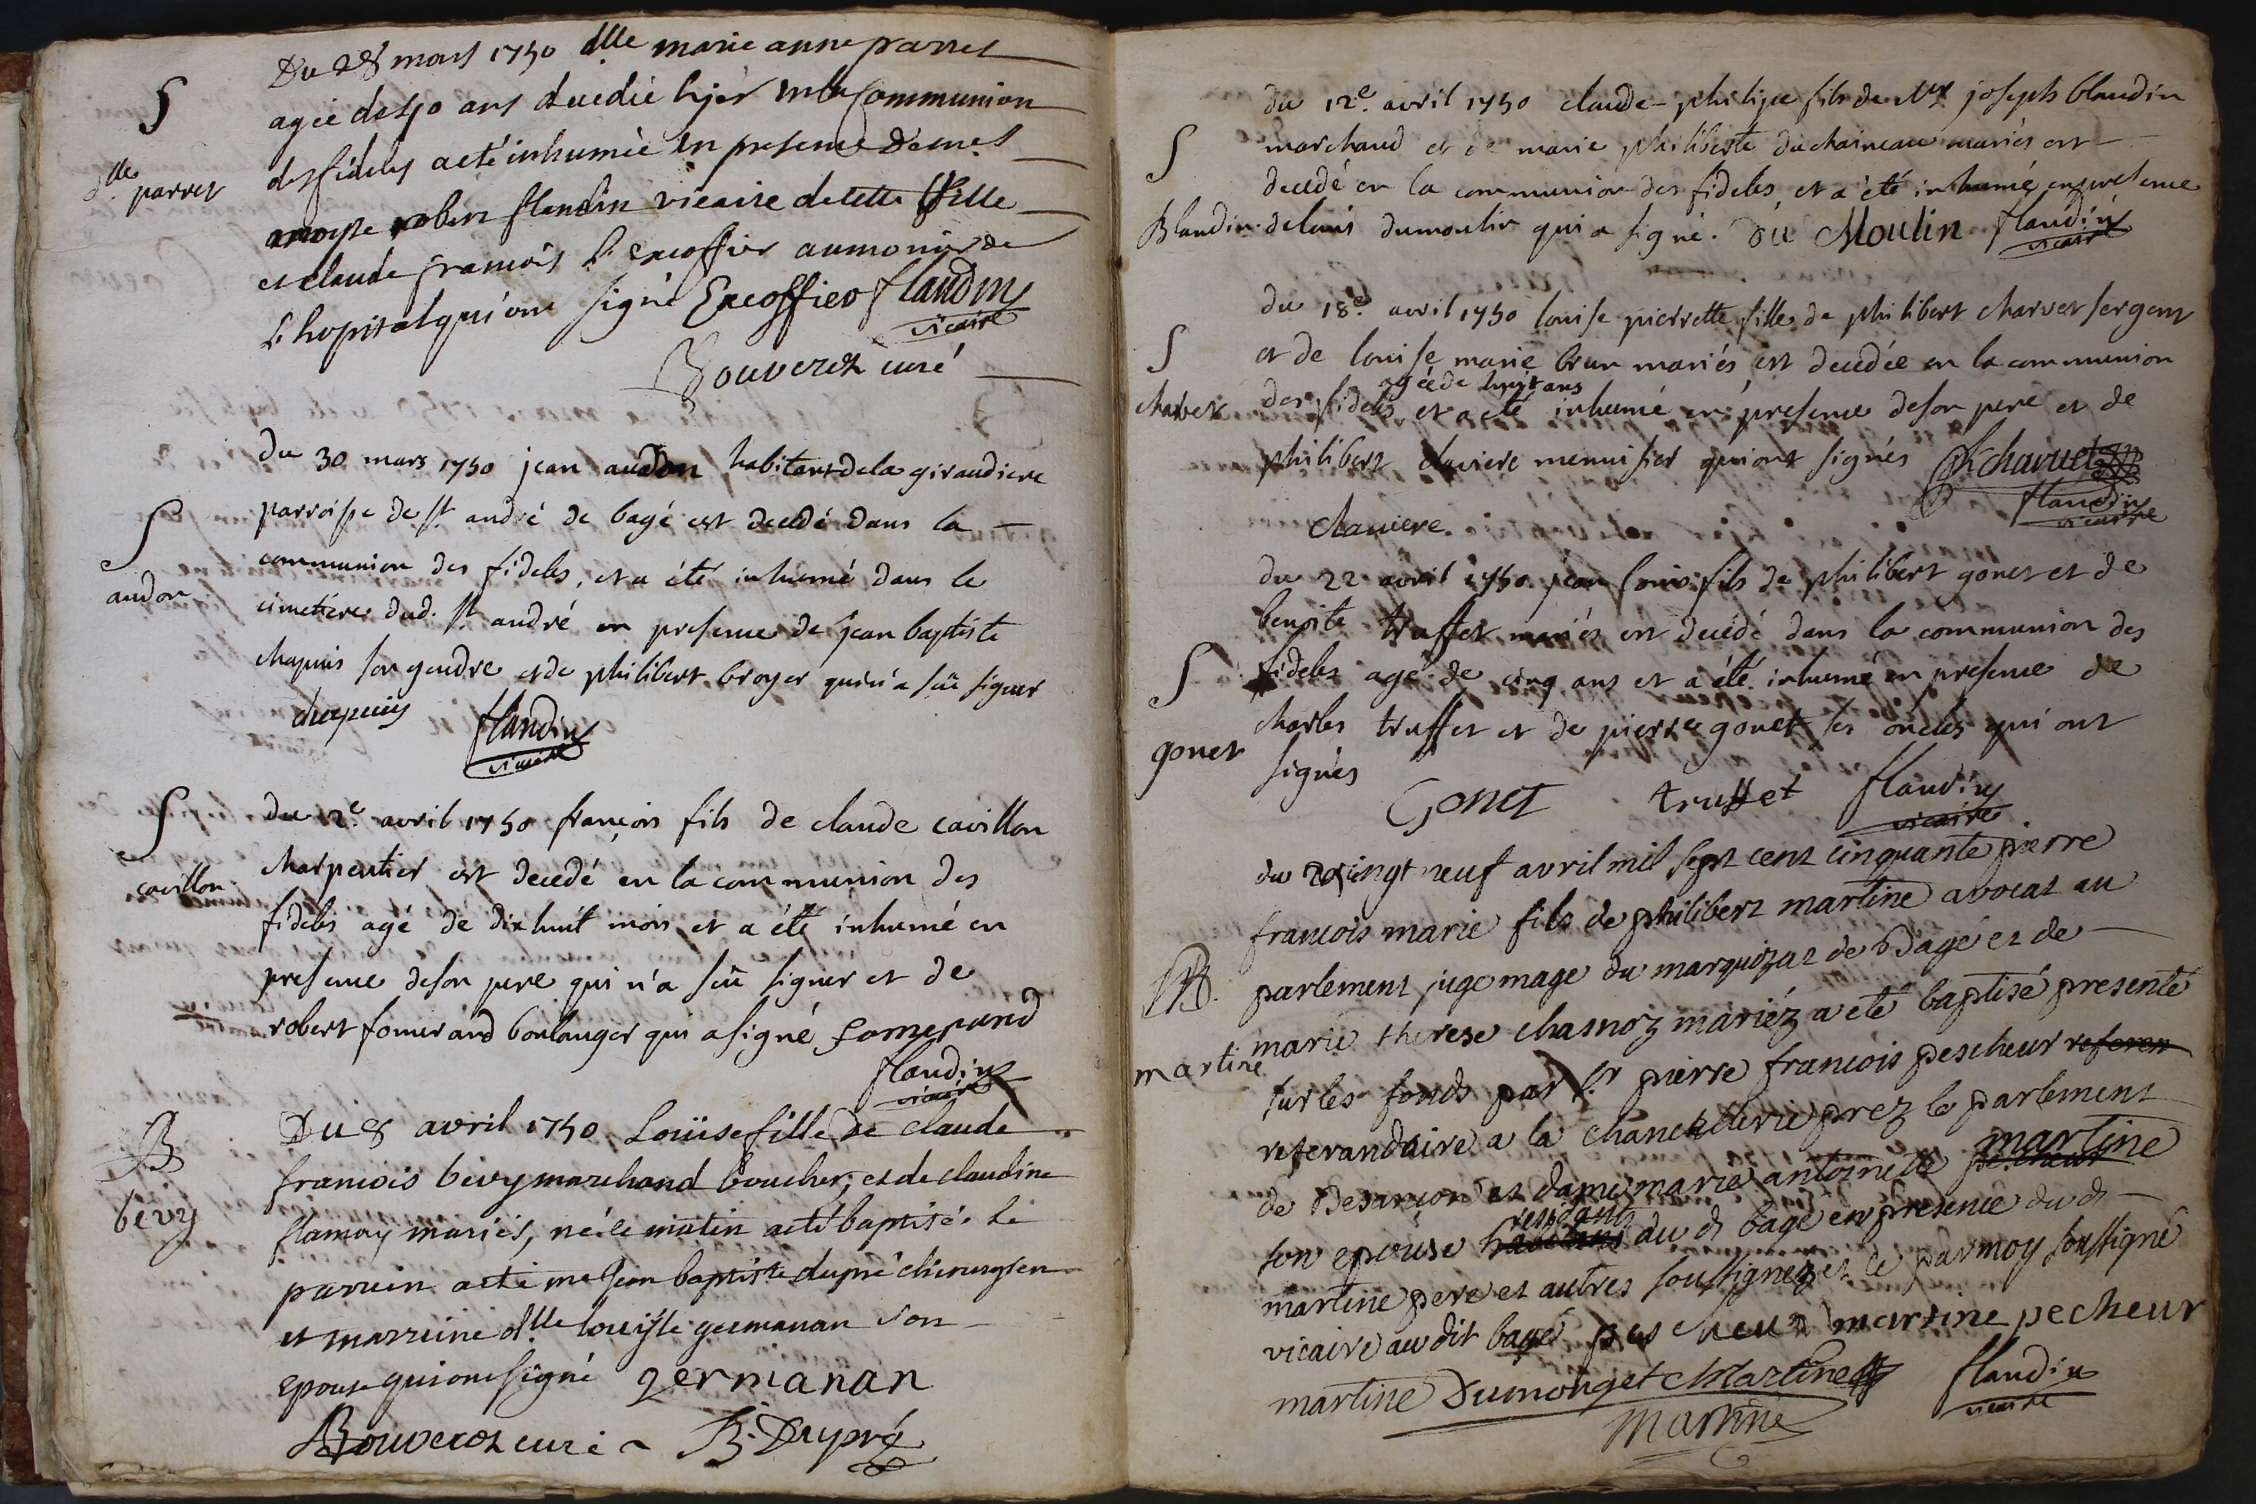 Du 28 mars 1750 dlle marie anne parret
S
agée de 50 ans decedée hjer en la Communion
des fideles a eté inhumée en presence de mes
dlle parret
robert flandin vicaire de cette ville
et claude francois L'excoffier aumonier de
L'hopital qui ont signé Excoffier flandin
vicaire
Bouveret curé
du 30 mars 1750 jean audon habitant de la giraudiere
S
parroisse de st andré de bagé est decedé dans la
communion des fideles, et a été inhumé dans le
audon
cimetiere dud. st andré en presence de jean baptiste
chapuis son gendre et de philibert broyer qui n'a sçû signer
chapuis flandin
vicaire
S
du 2e avril 1750 françois fils de claude cavillon
charpentier est decedé en la communion des
cavillon
fideles agé de dix huit mois et a été inhumé en
presence de son pere qui n'a sçû signer et de
robert fomerand boulanger qui a signé fomerand
flandin
vicaire
B
Du 8 avril 1750 Loüise fille de claude
francois bevy marchand boucher, et de claudine
bevy
flamary mariés, née le matin a eté baptisée. Le
parrein a eté me Jean baptiste dupré chirurgien
et marreine dlle louise germanan son
epouse qui ont signé germanan
Bouveret curé B. Dupré
du 12e. avril 1750 claude-philipe fils de sr joseph blandin
S
marchand et de marie philiberte duchaineau mariés est
decedé en la communion des fideles, et a été inhumé en presence
Blandin
de louis dumoulin qui a signé. Du Moulin flandin
vicaire
du 18e. avril 1750 louise pierrette fille de philibert charvet sergent
S
et de louise marie brun mariés, est decedée en la communion
agée de huit ans
charvet
des fideles, et a été inhumé en presence de son pere et de
philibert claviere menuisier qui ont signés Ph charvet
flandin
vicaire
claviere.
du 22 avril 1750. jean louis fils de philibert gonet et de
benoite truffet mariés est decedé dans la communion des
S
fideles agé de cinq ans et a été inhumé en presence de
charles truffet et de pierre gonet ses oncles qui ont
gonet
signés
Gonet truffet flandin
vicaire
du vingt neuf avril mil sept cent cinquante pierre
francois marie fils de philibert martine avocat au
B.
parlement juge mage du marquizat de Bagé et de
marie therese chamoz mariéz a eté baptisé presenté
martine
sur les fonds par sr pierre francois pescheur referen
referandaire a la chancellerie prez le parlement
de Besançon et dame marie antoinette pescheur martine
son epouse habitans residants du d bagé en presence du d
martine pere et autres soussignez et ce par moy soussigné
vicaire au dit bagé pescheur martine pecheur
martine Dumonget Martine flandin
vicaire
Martine